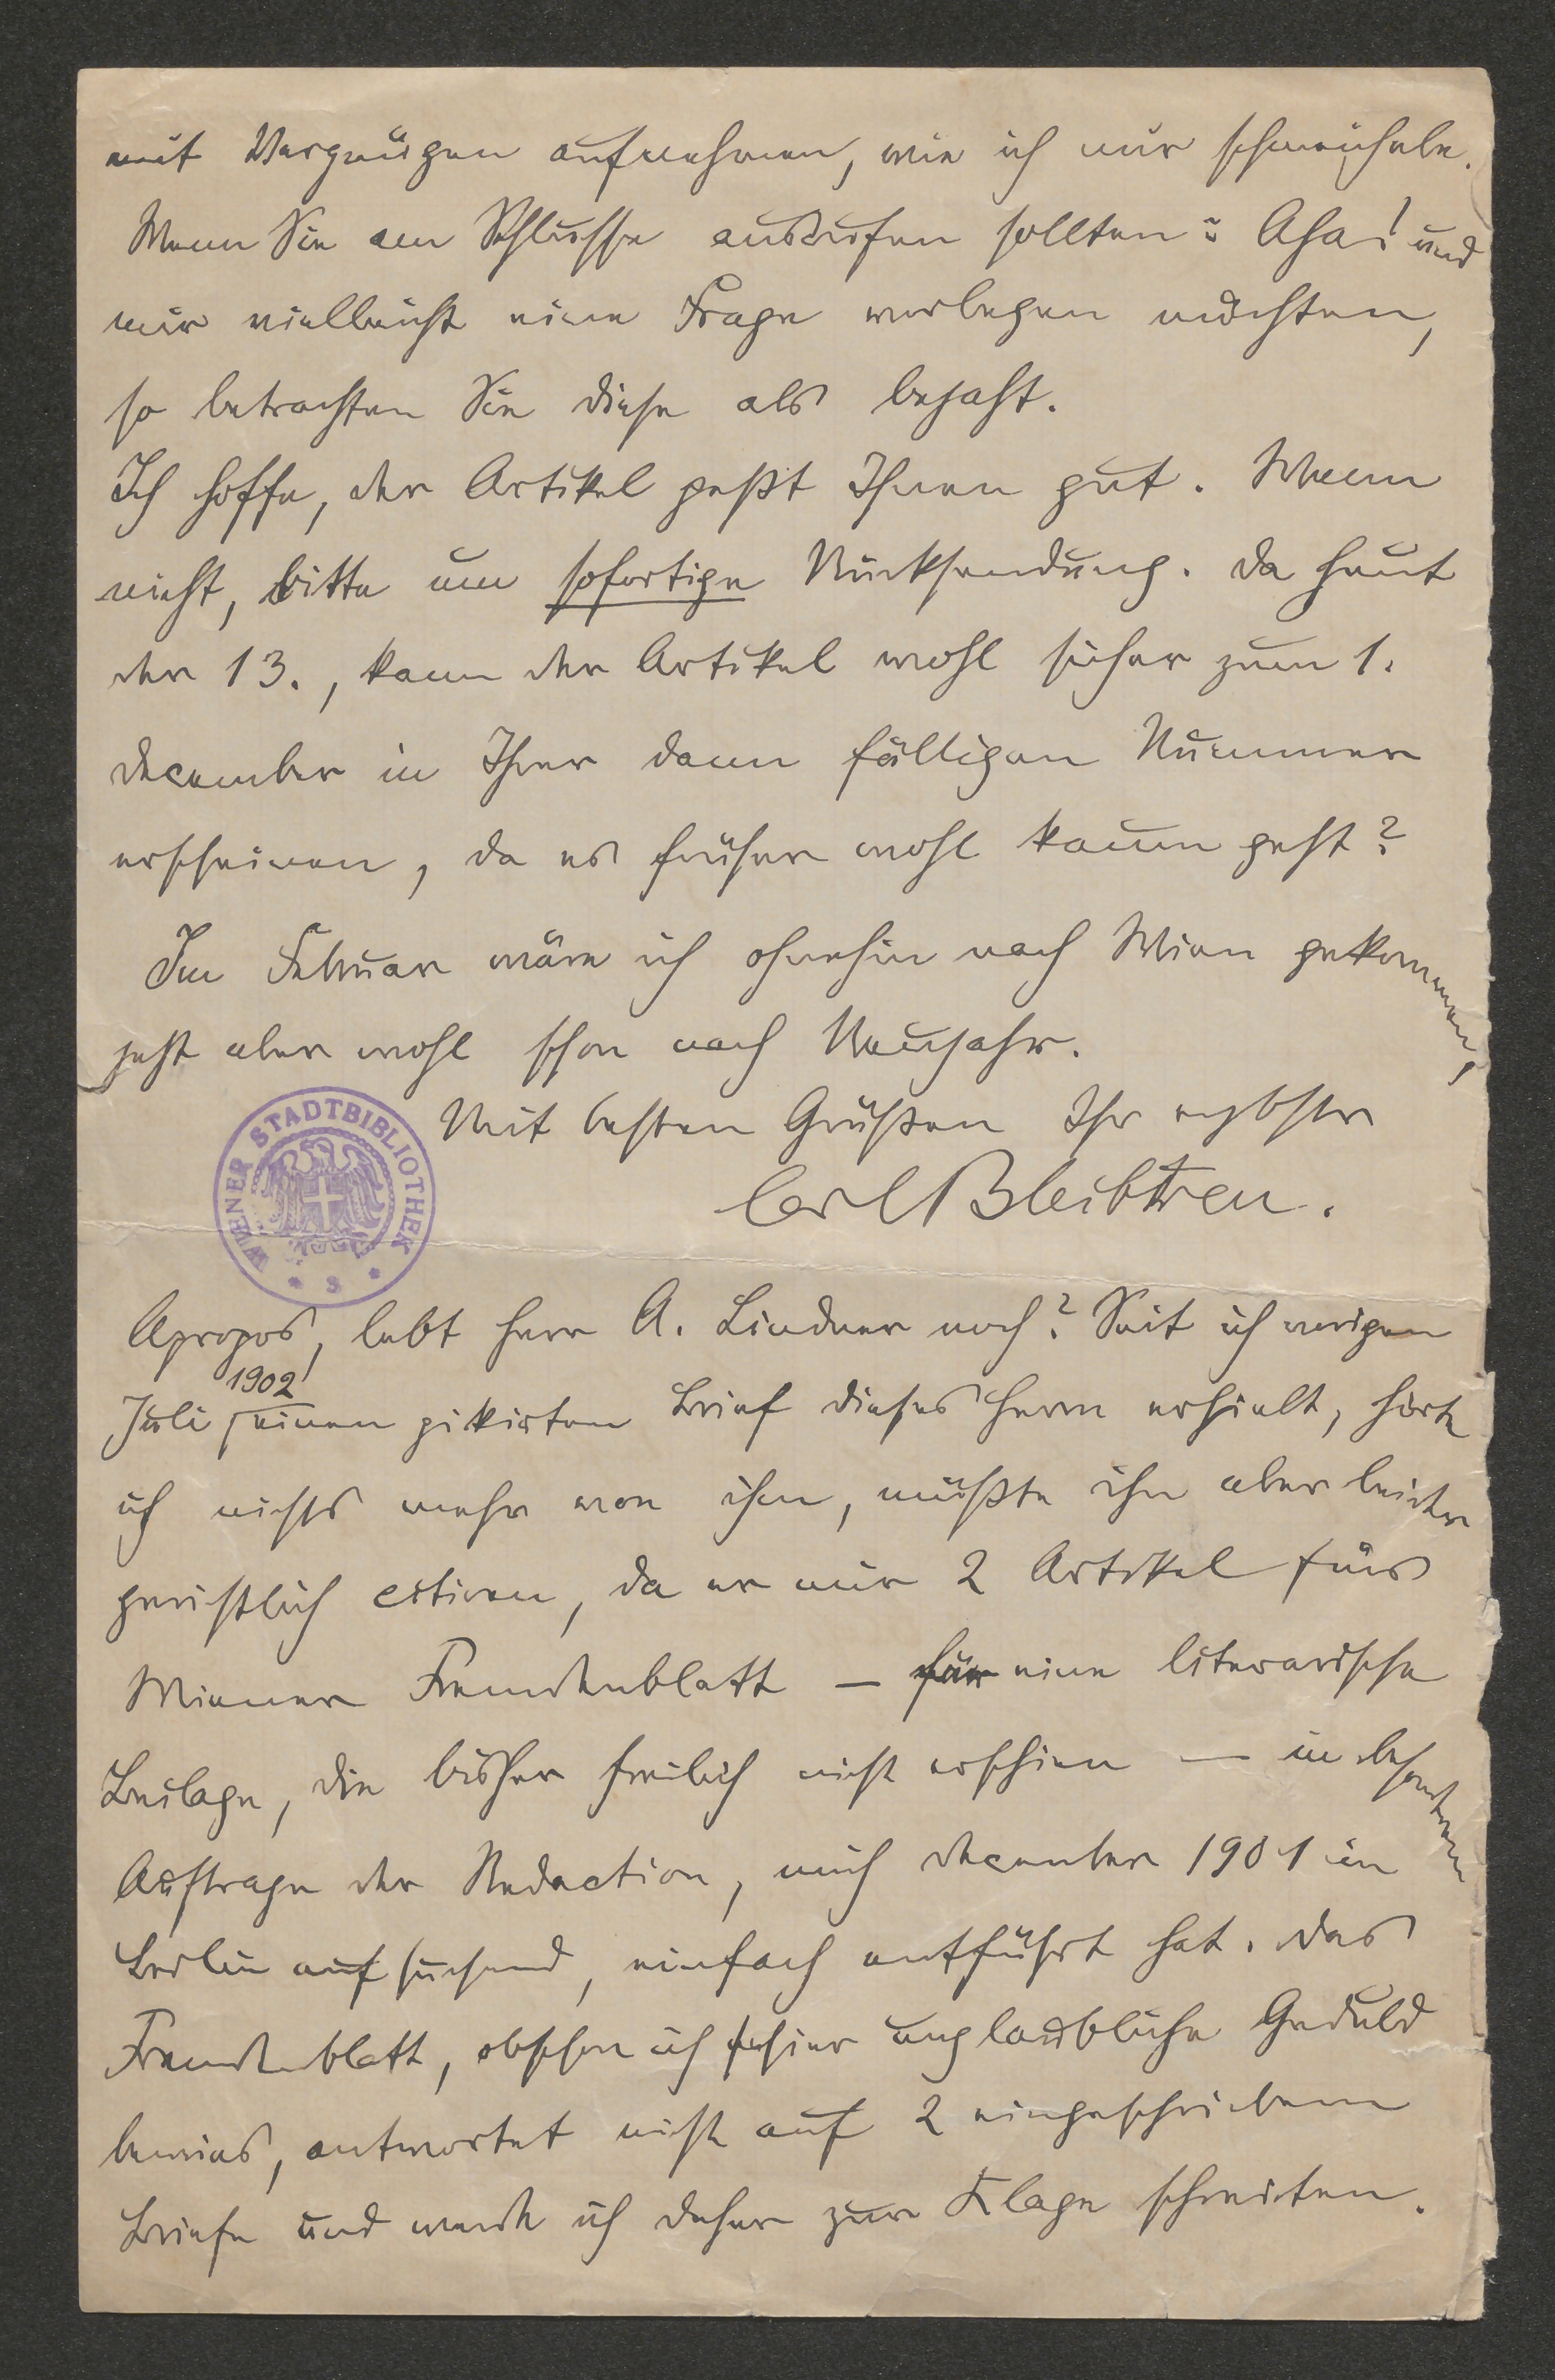 mit Vergnügen aufnehmen, wie ich mir schmeichele.
Wenn Sie am Schlusse ausrufen sollten: Aha! und
mir vielleicht eine Frage vorlegen möchten,
so betrachten Sie diese als bejaht.
Ich hoffe, der Artikel paßt Ihnen gut. Wenn
nicht, bitte um sofortige Rücksendung. Da heut
der 13., kann der Artikel wohl sicher zum 1.
December in Ihrer dann fälligen Nummer
erscheinen, da es früher wohl kaum geht?
Im Februar wäre ich ohnehin nach Wien gekommen,
jetzt aber wohl schon nach Neujahr.
Mit besten Grüßen Ihr ergbster
Carl Bleibtreu.
WIENER STADTBIBLIOTHEK
Apropos, lebt Herr A. Lindner noch? Seit ich vorigen
1902
Juli einen pikirten Brief dieses Herrn erhielt, hörte
ich nichts mehr von ihm, müßte ihn aber leider
gerichtlich citiren, da er mir 2 Artikel fürs
Wiener Fremdenblatt – für eine literarische
Beilage, die bisher freilich nicht erschien – in besonderem
Auftrage der Redaction, mich December 1901 in
Berlin aufsuchend, einfach entführt hat. Das
Fremdenblatt, obschon ich hier unglaubliche Geduld
bewies, antwortet nicht auf 2 eingeschriebene
Briefe und werde ich daher zur Klage schreiten.